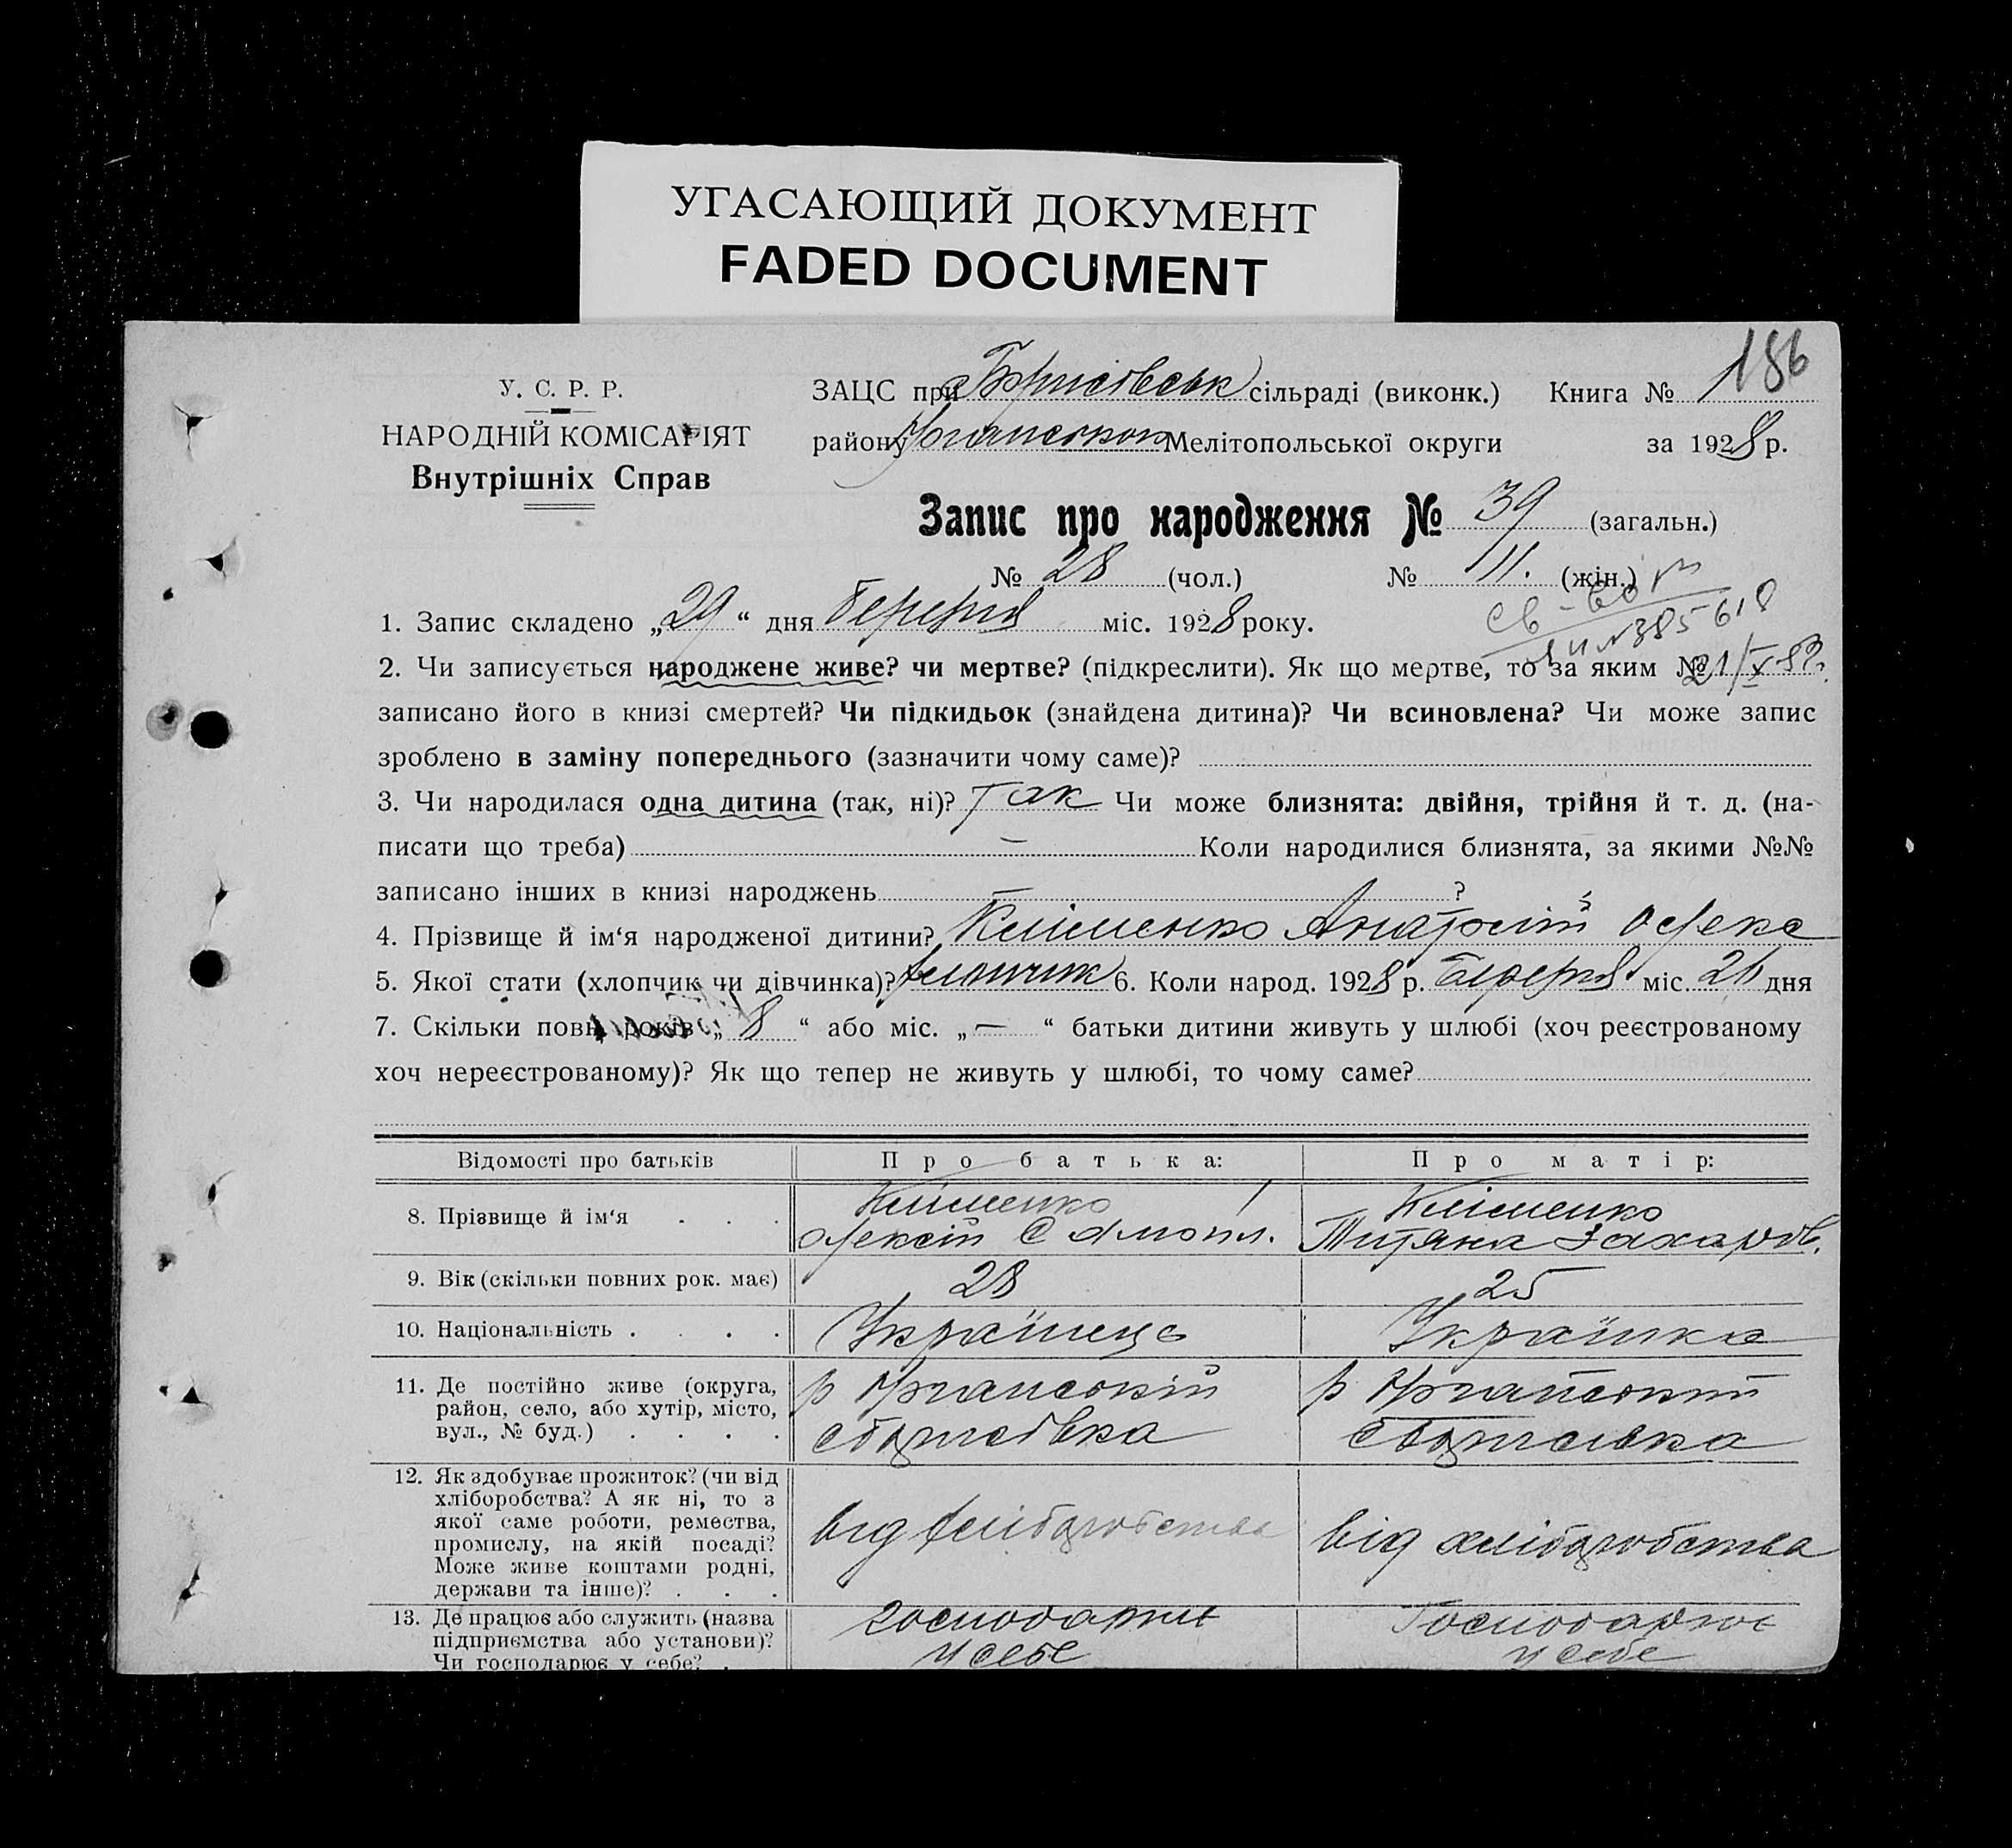 УГАСАЮЩИЙ ДОКУМЕНТ
FADED DOCUMENT
186
У. С. Р. Р.
НАРОДНІЙ КОМІСАРІЯТ
Внутрішніх Справ
ЗАЦС при Борисівськ сільраді (виконк.) Книга №
району Мелітопольської округи за 1928 р.
Запис про народження № 39 (загальн.)
№ 28 (чол.) № 11. (жін.)
1. Запис складено „29“ дня березня міс. 1928 року.
св-во
№385618
2. Чи записується народжене живе? чи мертве? (підкреслити). Як що мертве, то за яким №
21/X
записано його в книзі смертей? Чи підкидьок (знайдена дитина)? Чи всиновлена? Чи може запис
зроблено в заміну попереднього (зазначити чому саме)?
3. Чи народилася одна дитина (так, ні)? Так Чи може близнята: двійня, трійня й т. д. (на-
писати що треба) — Коли народилися близнята, за якими №№
записано інших в книзі народжень ?
4. Прізвище й ім‘я народженої дитини? Кліменко Анатолій Олекс
5. Якої стати (хлопчик чи дівчинка)? хлопчик 6. Коли народ. 1928 р. березня міс. дня
7. Скільки повн. років „8“ або міс. „—“ батьки дитини живуть у шлюбі (хоч реєстрованому
хоч нереєстрованому)? Як що тепер не живуть у шлюбі, то чому саме?
Відомості про батьків Про батька: Про матір:
8. Прізвище й ім‘я Кліменко Кліменко
Олексій Титяна Захаров.
9. Вік (скільки повних рок. має) 28 25
10. Національність Українець Українка
11. Де постійно живе (округа,
район, село, або хутір, місто,
вул., № буд.)
с Борисівка с Борисівка
12. Як здобуває прожиток? (чи від
хліборобства? А як ні, то з
якої саме роботи, ремества,
промислу, на якій посаді?
Може живе коштами родні,
держави та інше)?
від хліборобства від хліборобства
13. Де працює або служить (назва
підприємства або установи)?
Чи господарює у себе?
господарює Господарює
у себе у себе